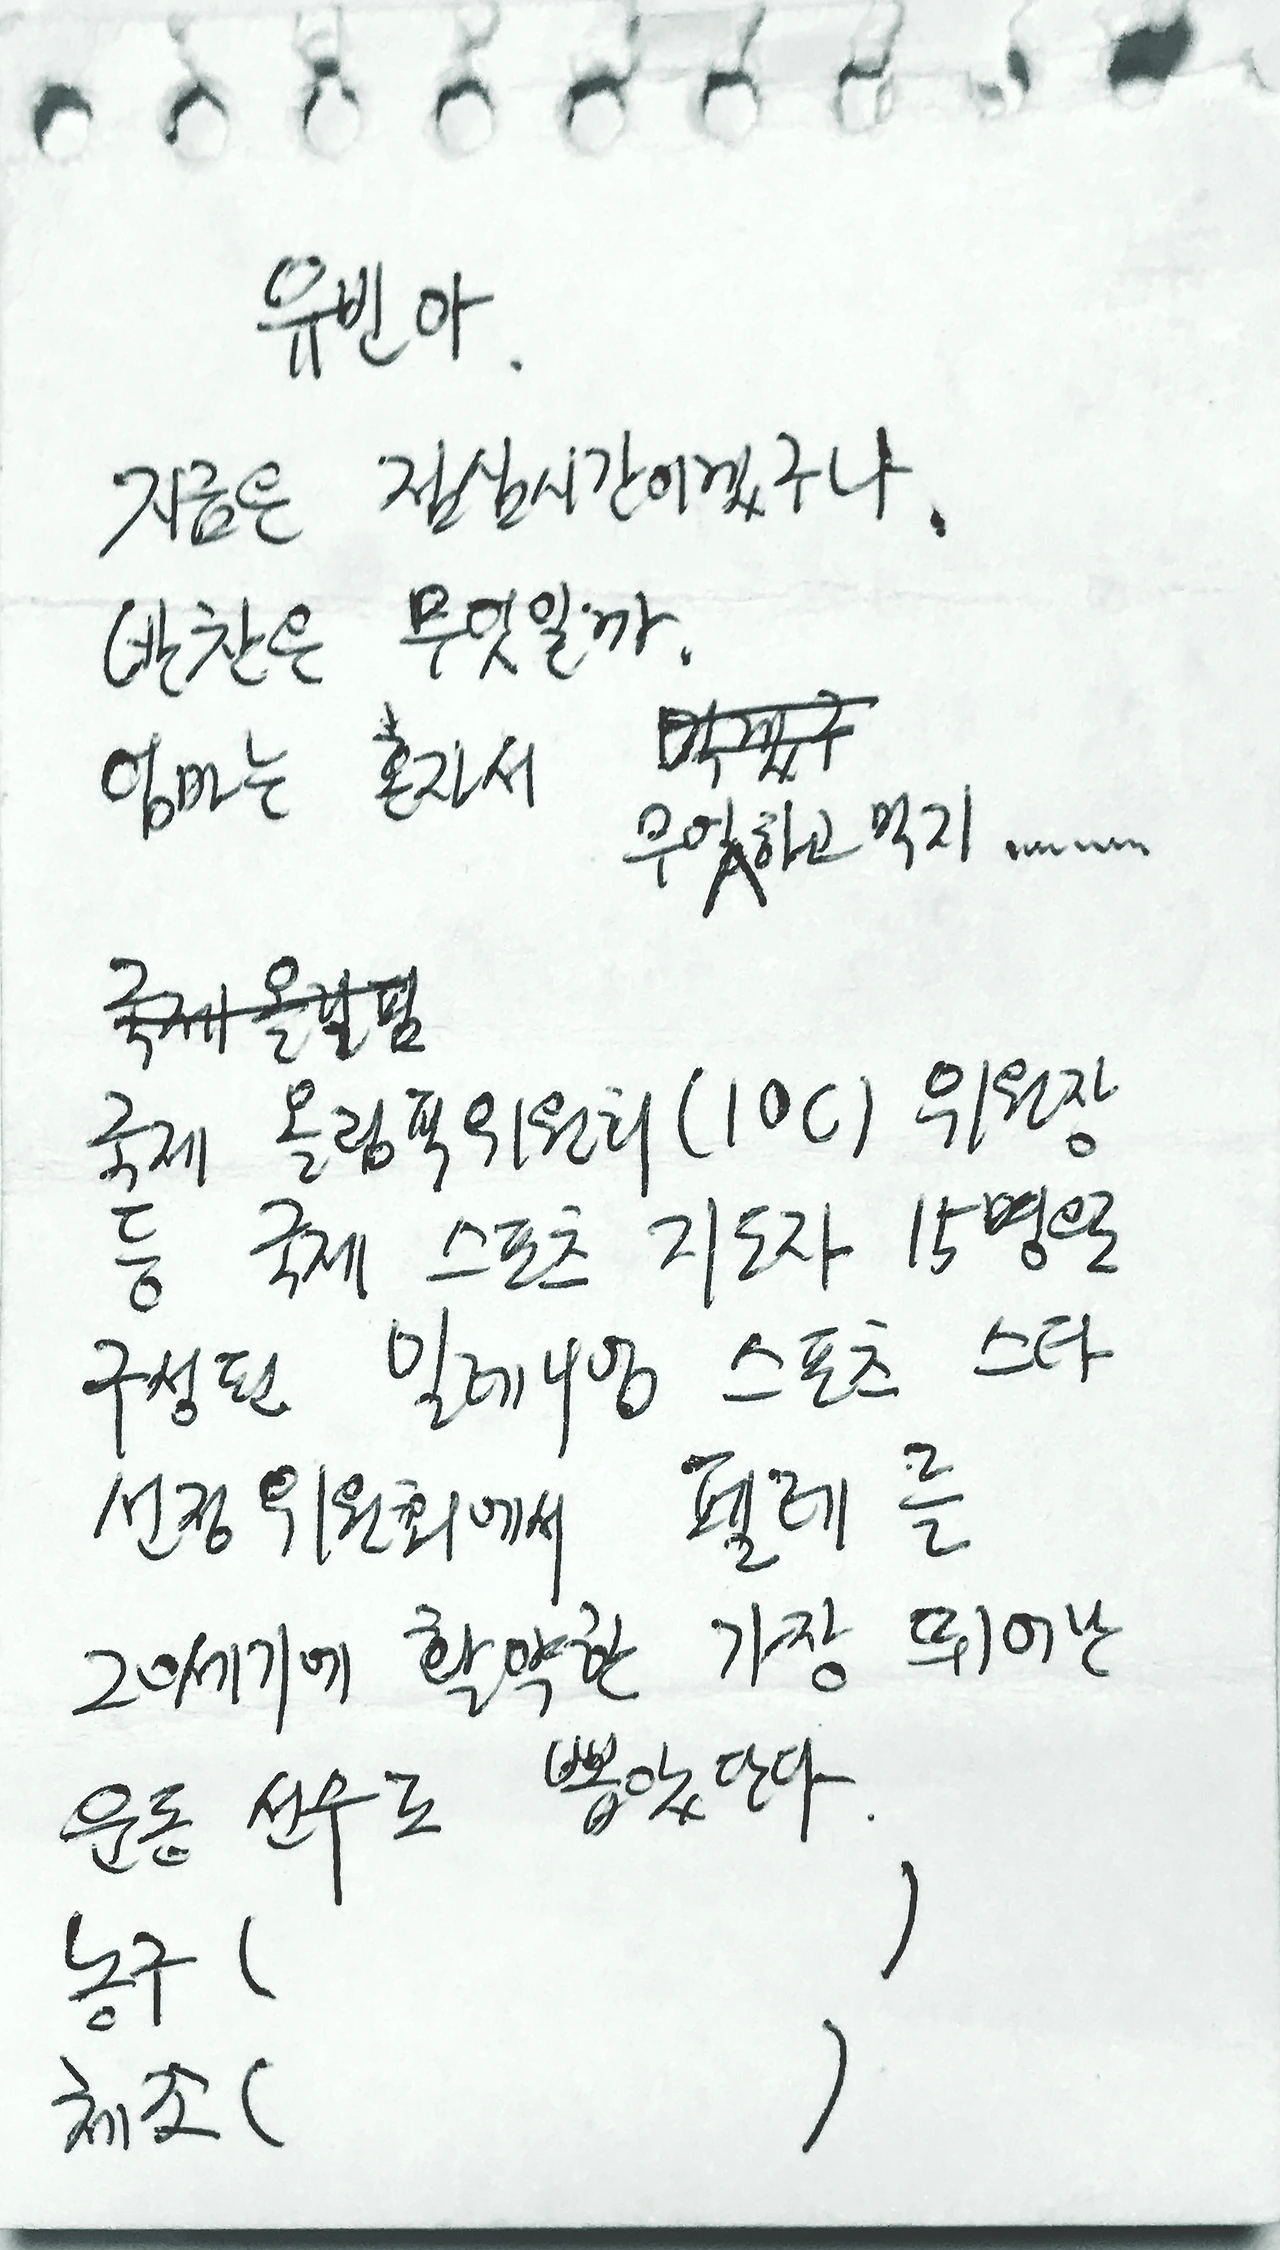 유빈아.
지금은 점심시간이겠구나.
반찬은 무엇일까.
엄마는 혼자서 먹겠구
무얼하고 먹지.........
국제 올림픽
국제 올림픽위원회(IOC) 위원장
등 국제 스포츠 지도자 15명으로
구성된 밀레니엄 스포츠 스타
선정위원회에서 펠레를
20세기에 활약한 가장 뛰어난
운동 선수로 뽑았단다.
농구 ( )
체조 ( )